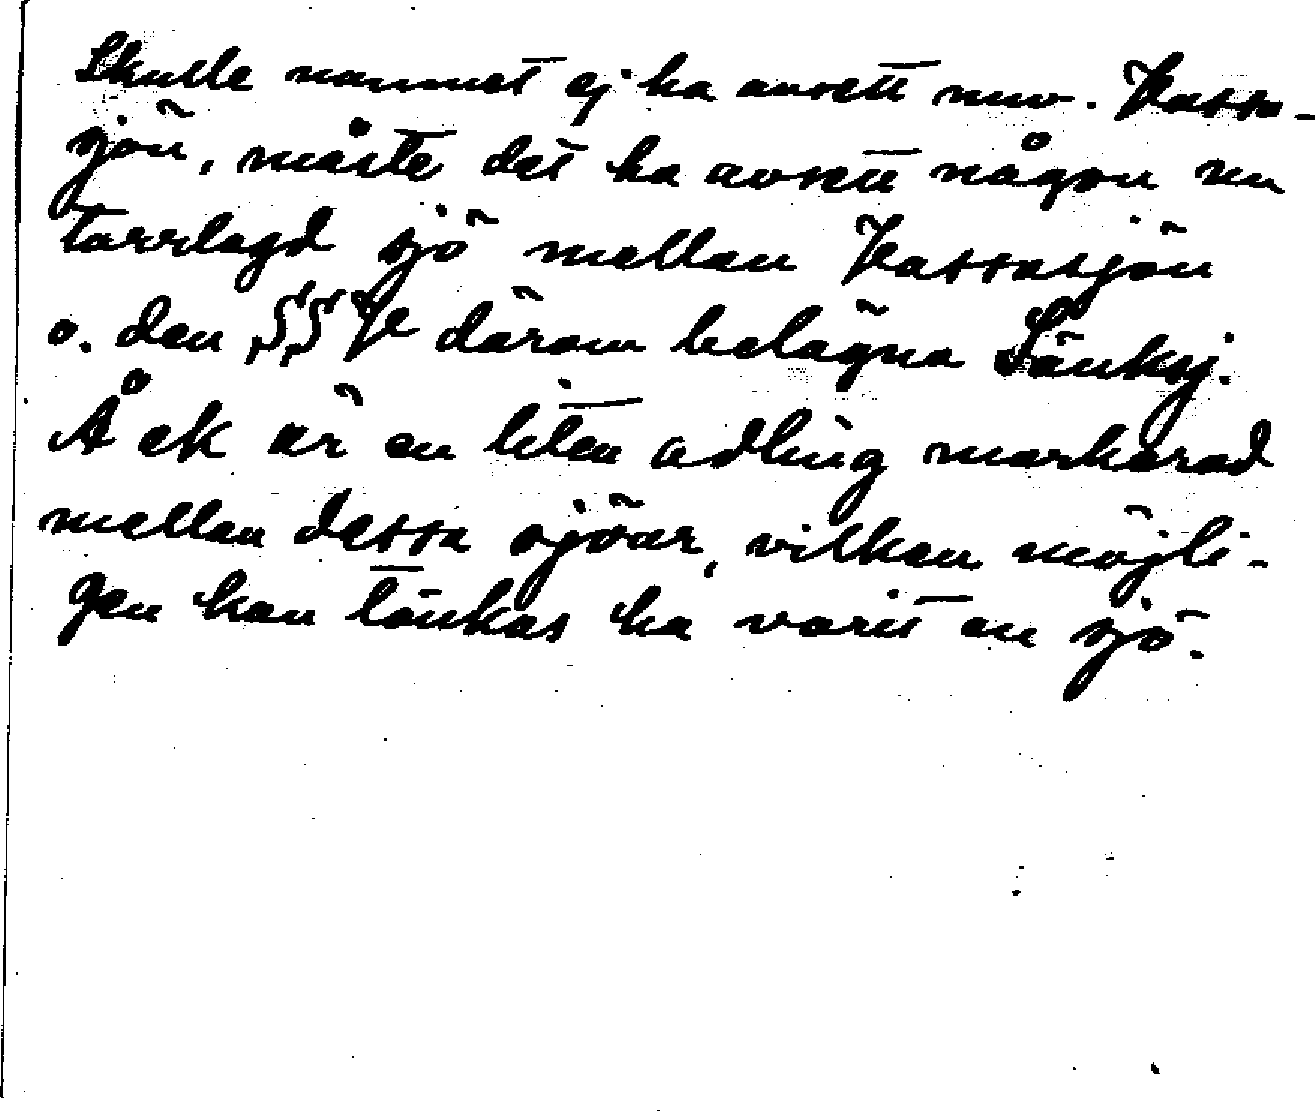 Skulle namnet ej ha avsett nuv. Vassa-
sjön, måste det ha avsett någon nu
torrlagd sjö mellan Vassasjön
o. den SSV därom belägna Länksj.
Å ek är en liten odling markerad
mellan dessa sjöar, vilken möjli-
gen kan tänkas ha varit en sjö.